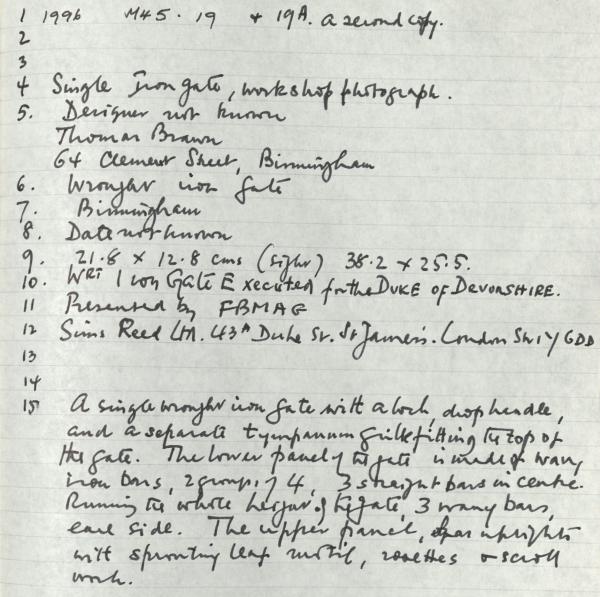 1 1996 M45. 19 + 19A. a second copy.
2
3
4 Single Iron gate, workshop photograph.
5. Designer not known
Thomas Brawn
64 Clement Street, Birmingham
6. Wrought iron gate
7. Birmingham
8. Date not known
9. 21.8 x 12.8 cms (sight) 38.2 x 25.5.
10. WRT Iron Gate Executed for the DUKE OF DEVONSHIRE.
11 Presented by FBMAG
12 Sims Reed Ltd. 43A Duke St. St James's. London SW1Y 6DD
13
14
15 A single wrought iron gate with a lock, drop handle,
and a separate tympanum grille fitting the top of
the gate. The lower panel of the gate is made of wavy
iron bars, 2 groups of 4, 3 straight bars in centre.
Running the whole height of the gate, 3 wavy bars,
each side. The upper panel, uprights
with sprouting leaf motif, rosettes & scroll
work.